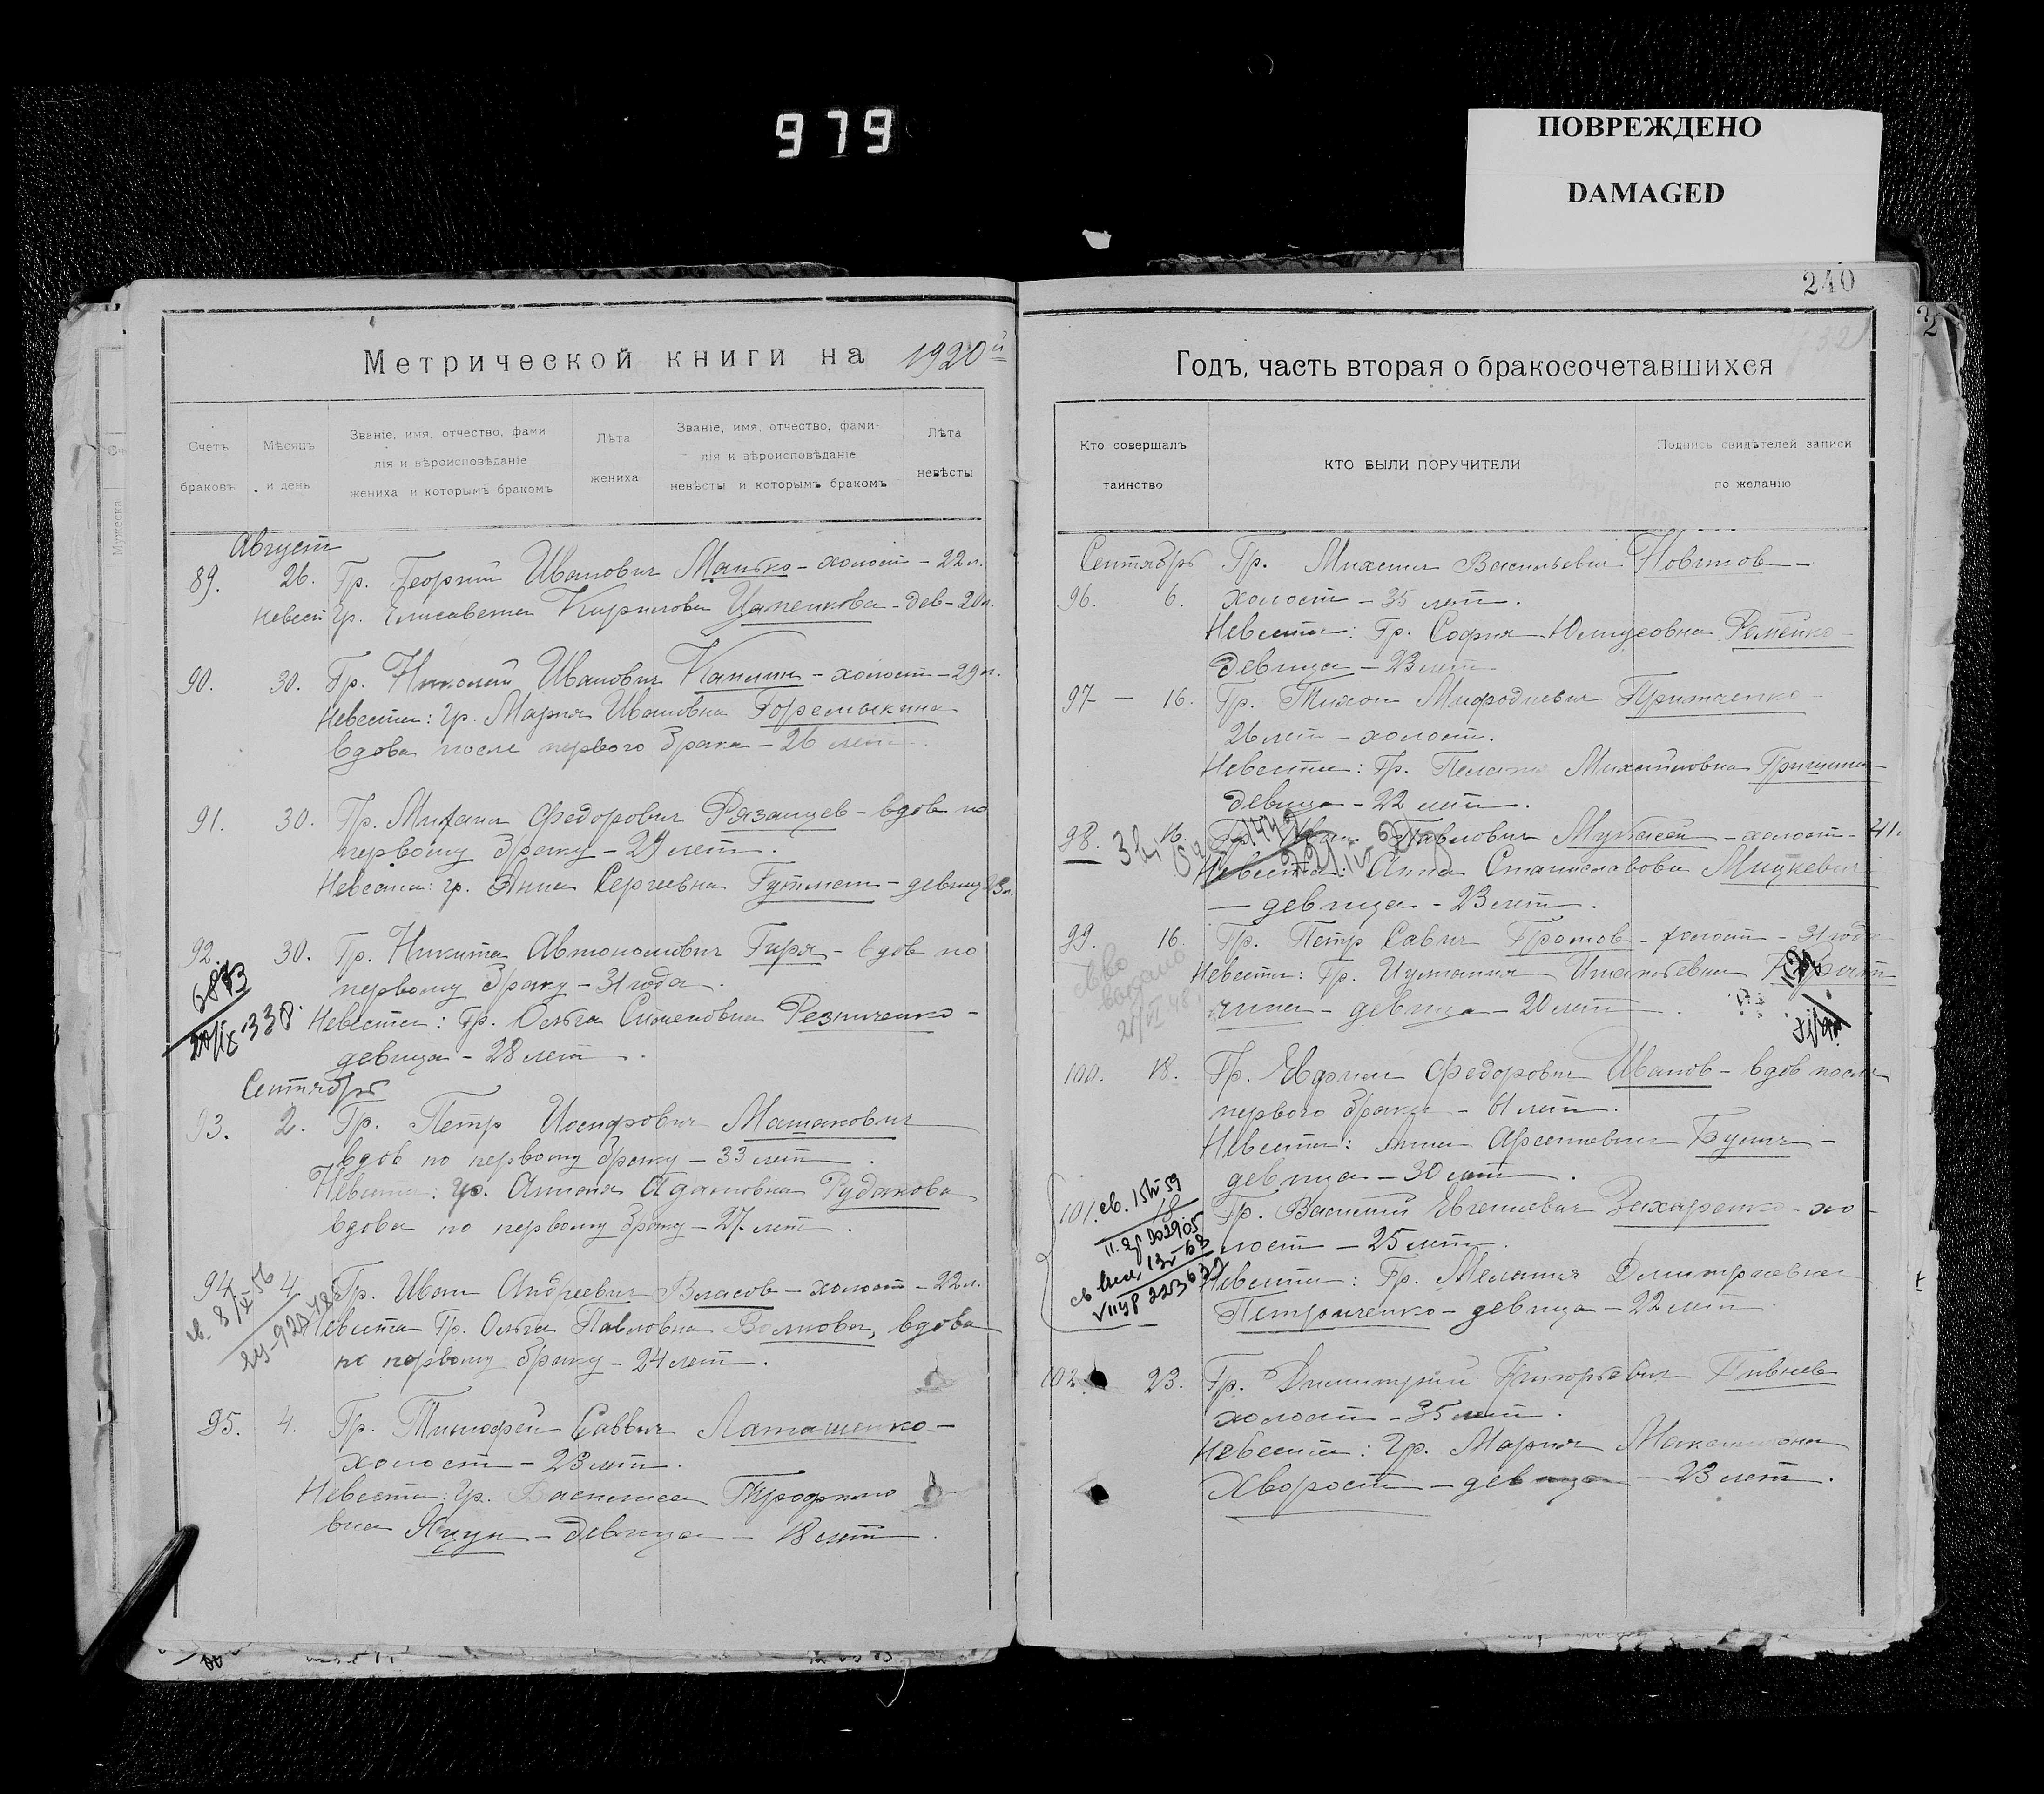 979
ПОВРЕЖДЕНО
DAMAGED
240
Метрической книги на 1920й
Счетъ браковъ
Мѣсяцъ и день
Званіе, имя, отчество, фами
лія и вѣроисповѣданіе
жениха и которымъ бракомъ
Лѣта жениха
Званіе, имя, отчество, фами-
лія и вѣроисповѣданіе
невѣсты и которымъ бракомъ
Лѣта невѣсты
Август
89. 26. Гр. Георгий Иванович Манько - холост - 22 л.
Невест Гр. Елисавета Кирилова Цапенкова - дев - 20 л.
90. 30. Гр. Николай Иванович Каплин - холост - 29 л.
Невеста: гр. Мария Ивановна Горемыкина
вдова после первого брака - 26 лет.
91. 30. Гр. Михаил Федорович Рязанцев - вдов по
первому браку - 29 лет.
Невеста: гр. Анна Сергеевна - девиц 23 л.
92. 30. Гр. Никита Автономович Гиря - вдов по
первому браку - 31 года.
Невеста: Гр. Ольга Семеновна Резниченко -
девица - 28 лет.
Сентябрь
93. 2. Гр. Петр Иосифович
вдов по первому браку - 33 лет.
Невеста: гр. Адамовна Рудакова
вдова по первому браку - 27 лет.
94. 4. Гр. Иван Андреевич Власов - холост - 22 л.
Невеста Гр. Ольга Павловна Волкова, вдова
по первому браку - 24 лет.
95. 4. Гр. Тимофей Саввич Латашенко -
холост - 23 лет.
Невеста: Гр. Василиса Трофимо
вна Яцун - девица - 18 лет.
Годъ, часть вторая о бракосочетавшихся
Кто совершалъ таинство
КТО БЫЛИ ПОРУЧИТЕЛИ
Подпись свидѣтелей записи
по желанію
Сентябрь Гр. Михаил Васильевич Новиков -
96. 6. холост - 35 лет.
Невеста: Гр. София
девица - 23 лет.
97 - 16. Гр. Тихон Мефодиевич Притченко -
26 лет - холост.
Невеста: Гр. Михайловна Гришина
девица - 22 лет.
98. 16. Гр. Иван Павлович - холост - 41.
Невеста: Анна Станиславовна Мицкевич
- девица - 23 лет.
99. 16. Гр. Петр Савич Громов - холост - 31 года
Невеста: Гр. Игнатьевна
- девица - 20 лет.
св-во
выдано
100. 18. Гр. Ефим Федорович Иванов - вдов после
первого брака - лет.
Невеста: Анна Арсениевна -
девица - 30 лет.
101. 18 Гр. Василий Евгениевич Захаренко - хо-
лост - 25 лет.
Невеста: Гр. Мелания Димитриевна
Петриченко - девица - 22 лет.
102. 23. Гр. Димитрий Григорьевич Пивнев
холост - 35 лет.
Невеста: Гр. Мария
Хворост - девица - 23 лет.